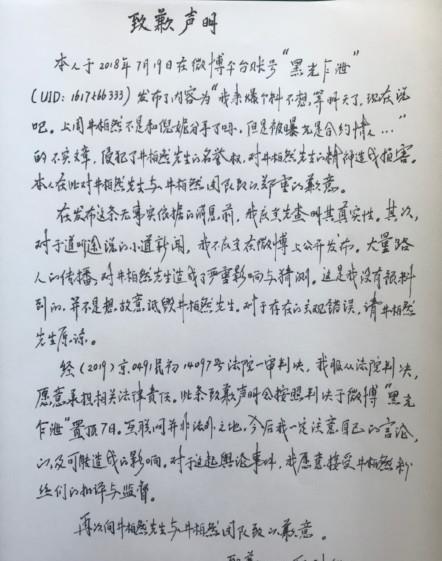 致歉声明
本人于2018年7月19日在微博平台账号“黑光乍泄”
(UID:1617566333)发布了内容为“我来爆个料不想,等明天了,现在说
吧。上周井柏然不是和倪妮分手了吗,但是被曝光是合约情人…”
的不实文章,侵犯了井柏然先生的名誉权,对井柏然先生的精神造成损害。
本人在此对井柏然先生与井柏然团队致以郑重的歉意。
在发布这条无事实依据的消息前,我应先查明其真实性。其次,
对于道听途说的小道新闻,我不应在微博上公开发布。大量路
人的传播,对井柏然先生造成了严重影响与猜测。这是我没有预料
到的,并不是想故意诋毁井柏然先生。对于存在的主观错误,请井柏然
先生原谅。
经(2019)京0491民初14097号法院一审判决,我服从法院判决,
愿意承担相关法律责任。此条致歉声明会按照判决于微博“黑光
乍泄”置顶7日。互联网并非法外之地,今后我一定注意自己的言论,
以及可能造成的影响。对于这起舆论事件,我愿意接受井柏然粉
丝们的批评与监督。
再次向井柏然先生与井柏然团队致以歉意。